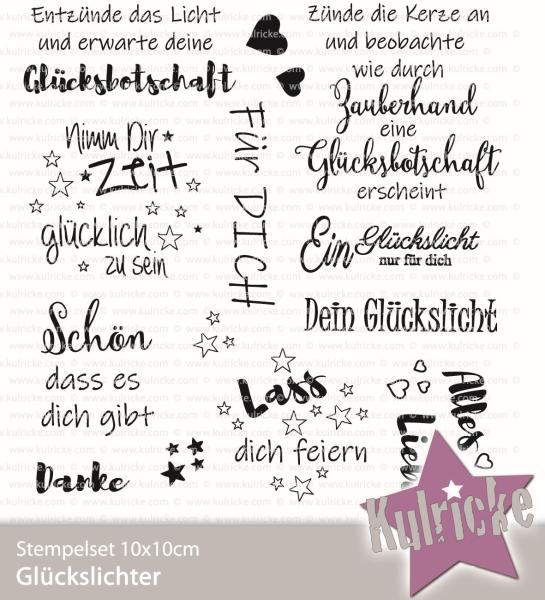 Entzünde das Licht
und erwarte deine
Glücksbotschaft
Zünde die Kerze an
und beobachte
wie durch
Zauberhand
eine
Glücksbotschaft
erscheint
Nimm Dir
Zeit
glücklich
zu sein
Für DICH
Ein Glückslicht
nur für dich
Dein Glückslicht
Schön
dass es
dich gibt
Lass
dich feiern
Alles
Danke
Kulricke
Stempelset 10x10cm
Glückslichter